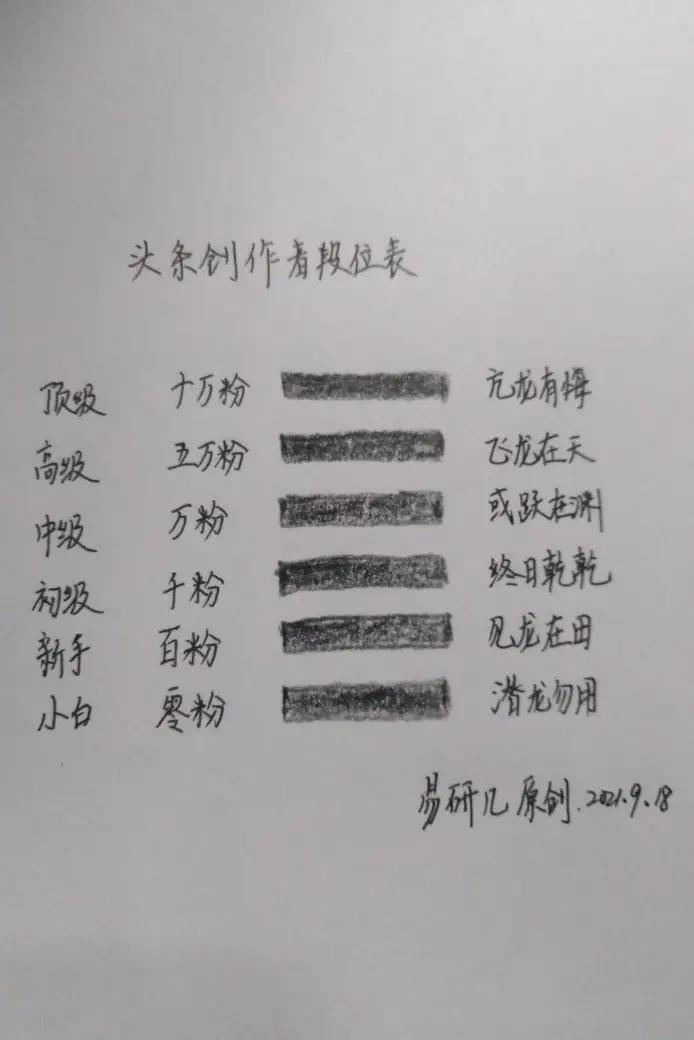 头条创作者段位表
顶级 十万粉 亢龙有悔
高级 五万粉 飞龙在天
中级 万粉 或跃在渊
初级 千粉 终日乾乾
新手 百粉 见龙在田
小白 零粉 潜龙勿用
易研几原创.2021.9.18